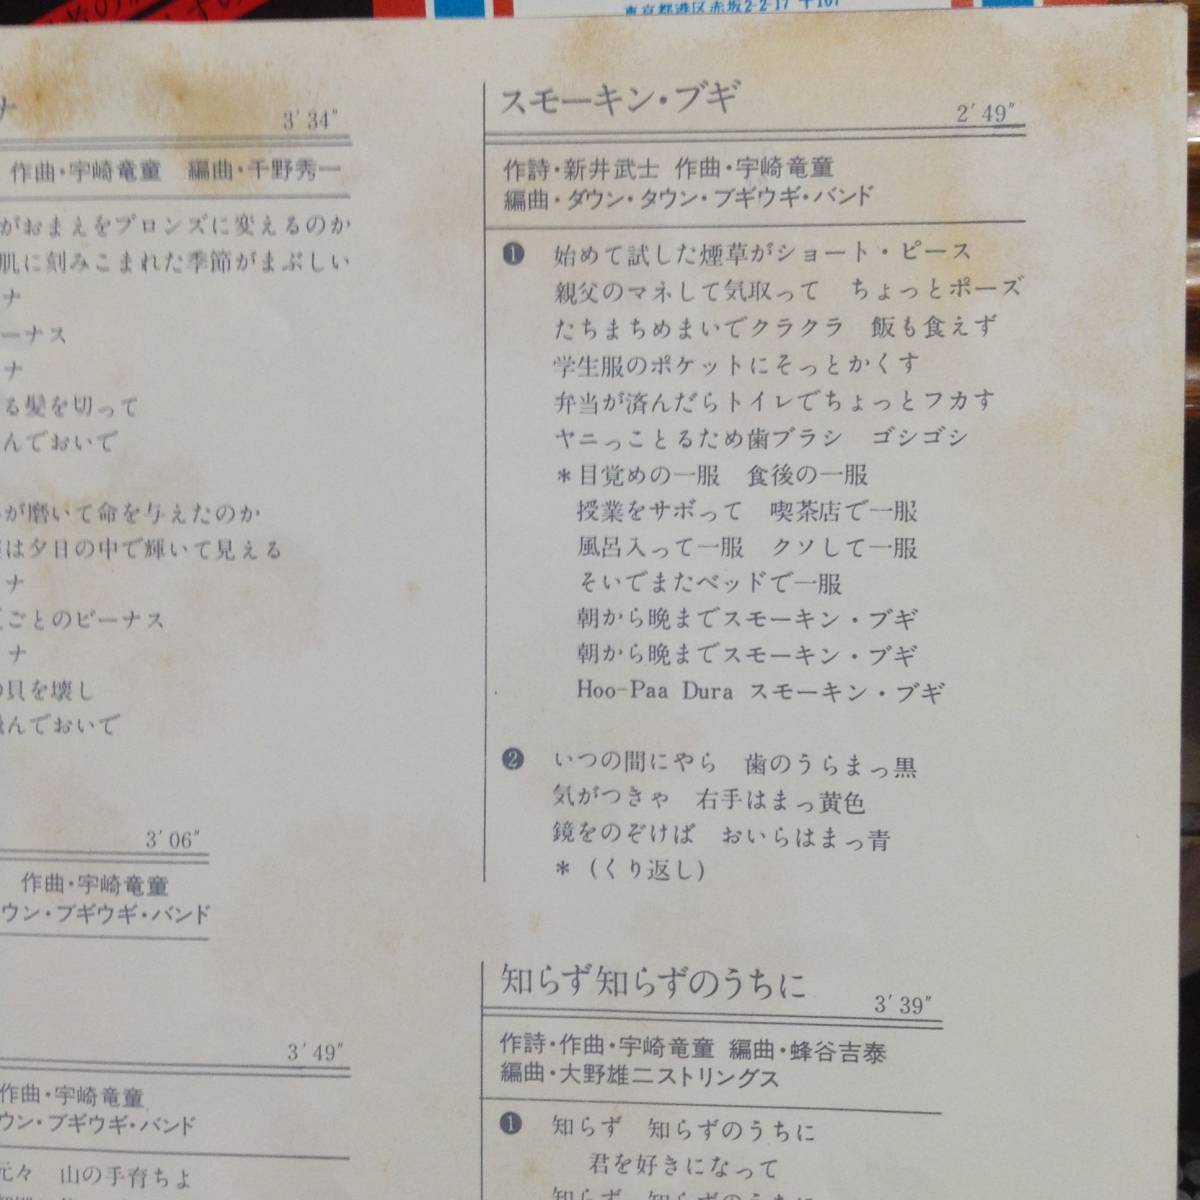 東京都港区赤坂2-2-17 〒107
ナ
3′34″
作曲・宇崎竜童 編曲・千野秀一
がおまえをブロンズに変えるのか
肌に刻みこまれた季節がまぶしい
ナ
ーナス
ナ
る髪を切って
んでおいで
が磨いて命を与えたのか
は夕日の中で輝いて見える
ナ
ごとのビーナス
ナ
の貝を壊し
んでおいで
3′06″
作曲・宇崎竜童
ウン・ブギウギ・バンド
3′49″
作曲・宇崎竜童
ウン・ブギウギ・バンド
元々 山の手育ちよ
スモーキン・ブギ
2′49″
作詩・新井武士 作曲・宇崎竜童
編曲・ダウン・タウン・ブギウギ・バンド
❶ 始めて試した煙草がショート・ピース
親父のマネして気取って ちょっとポーズ
たちまちめまいでクラクラ 飯も食えず
学生服のポケットにそっとかくす
弁当が済んだらトイレでちょっとフカす
ヤニっことるため歯ブラシ ゴシゴシ
＊目覚めの一服 食後の一服
授業をサボって 喫茶店で一服
風呂入って一服 クソして一服
そいでまたベッドで一服
朝から晩までスモーキン・ブギ
朝から晩までスモーキン・ブギ
Hoo-Paa Dura スモーキン・ブギ
❷ いつの間にやら 歯のうらまっ黒
気がつきゃ 右手はまっ黄色
鏡をのぞけば おいらはまっ青
＊（くり返し）
知らず知らずのうちに
3′39″
作詩・作曲・宇崎竜童 編曲・蜂谷吉泰
編曲・大野雄二ストリングス
❶ 知らず 知らずのうちに
君を好きになって
知らず 知らずのうちに